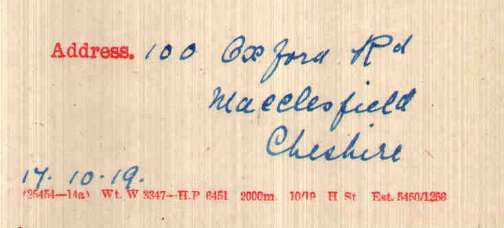 Address. 100 Oxford Rd
Macclesfield
Cheshire
17.10.19.
(35454—14a) Wt. W 3347—H.P 6451 2000m. 10/19 H St Est. 5450/1256